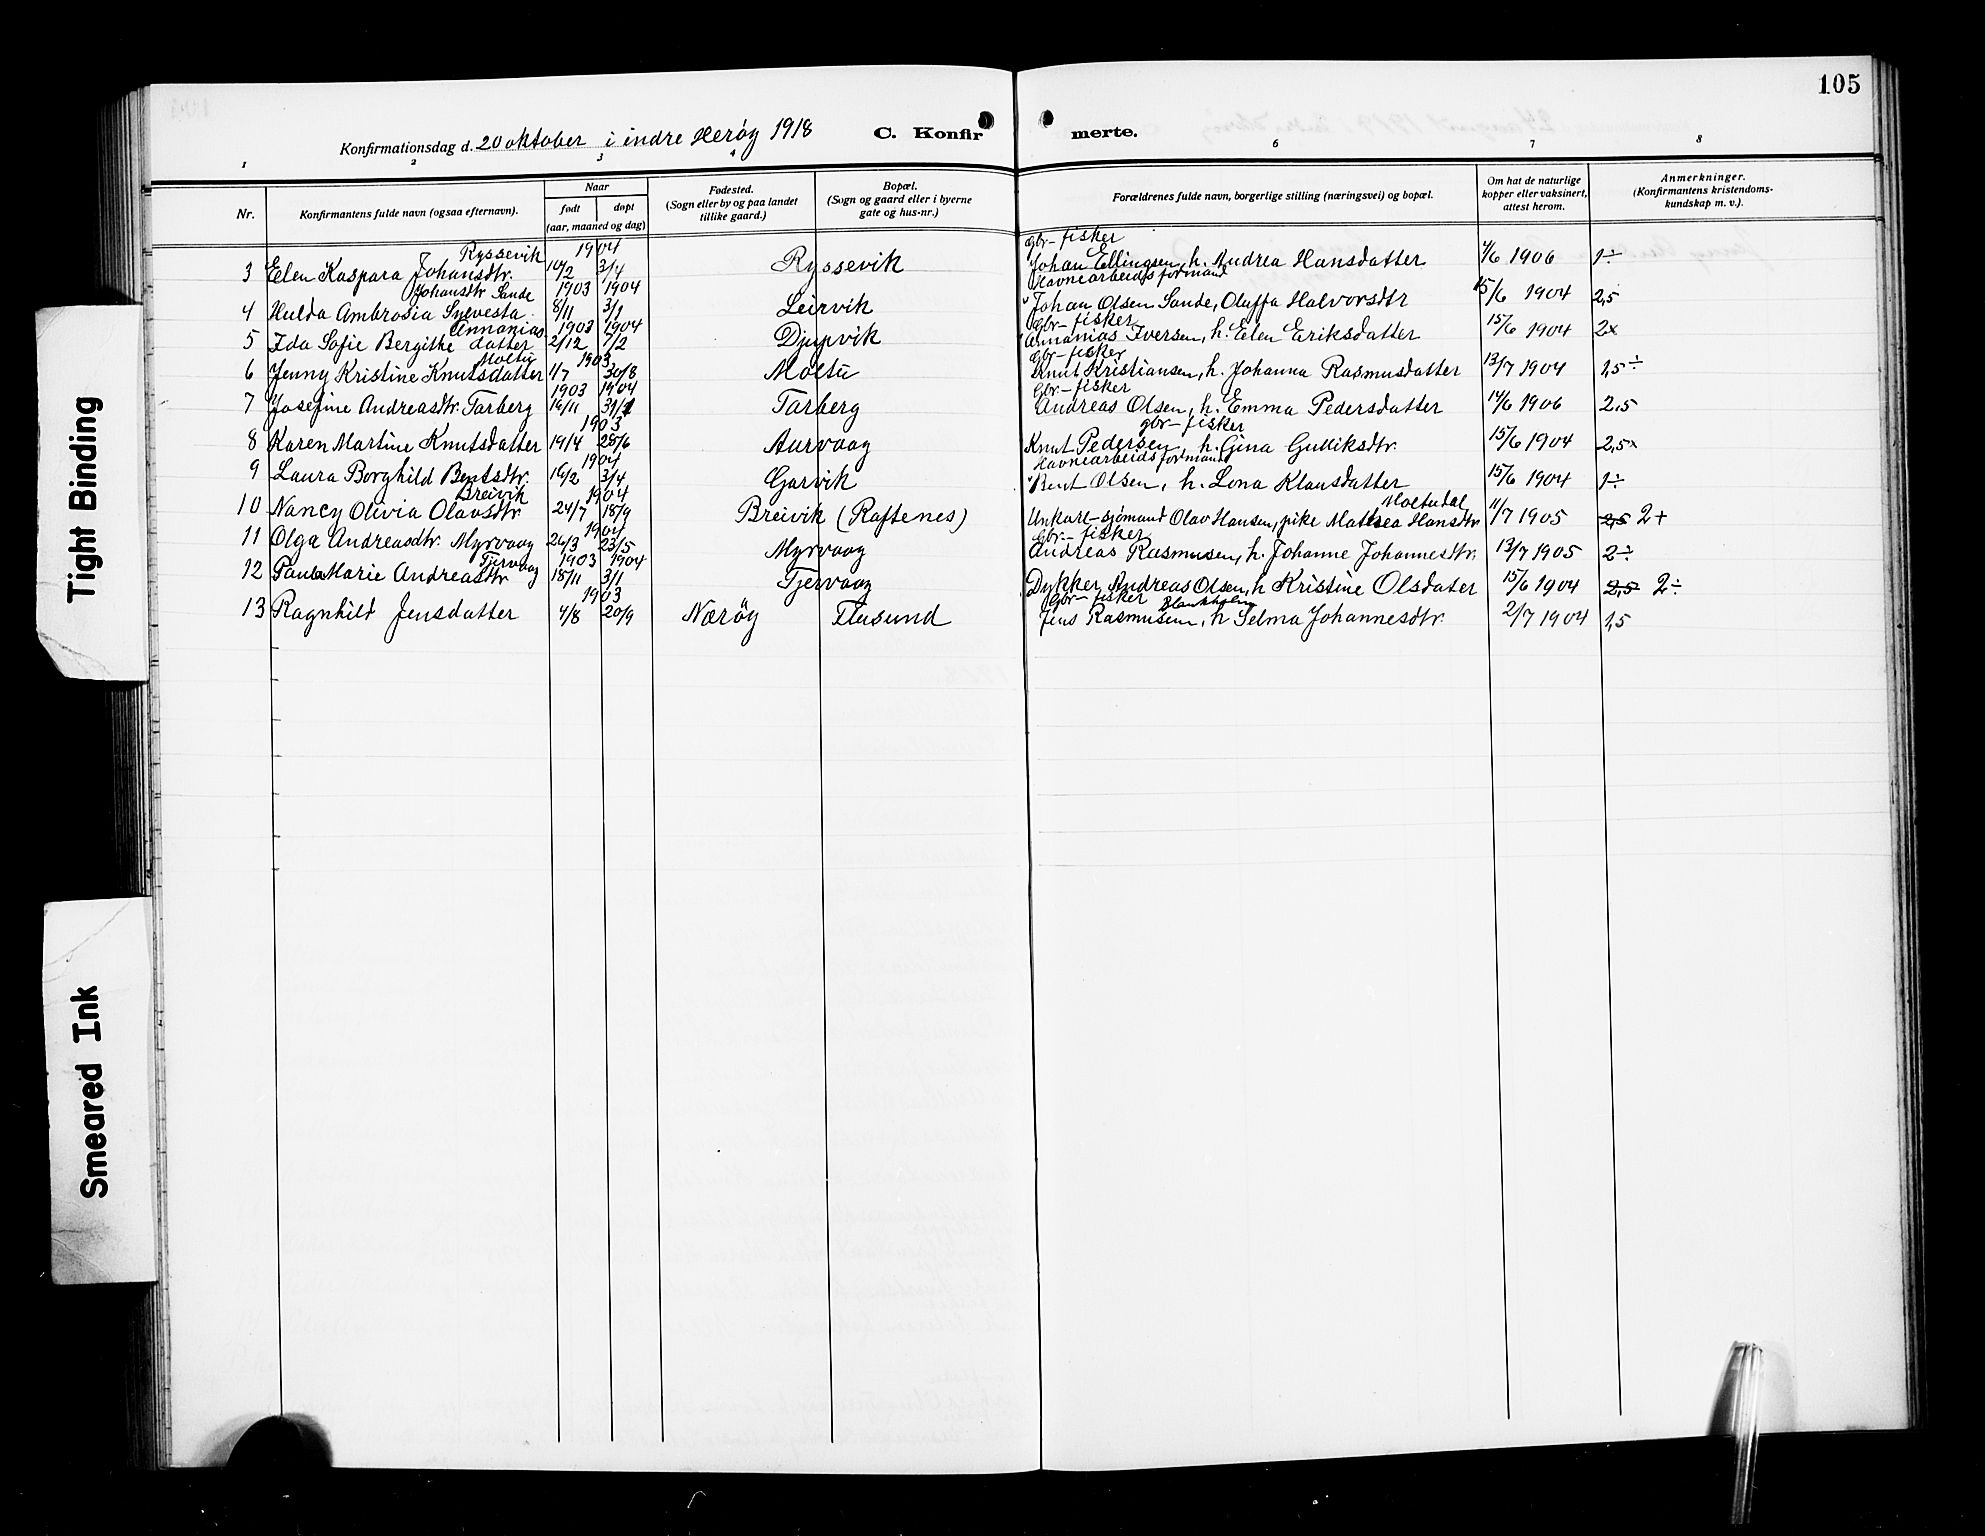 105
Konfirmationsdag d. 20 oktober i indre Herøy 1918 C. Konfirmerte.
1 2 3 4 6 7 8
Nr. Konfirmantens fulde navn (ogsaa efternavn). Naar født døpt (aar, maaned og dag) Fødested. (Sogn eller by og paa landet tillike gaard.) Bopæl. (Sogn og gaard eller i byerne gate og hus-nr.) Forældrenes fulde navn, borgerlige stilling (næringsvei) og bopæl. Om hat de naturlige kopper eller vaksinert, attest herom. Anmerkninger. (Konfirmantens kristendoms-kundskap m. v.).
Ryssevik 1904 gbr-fisker
3 Elen Kaspara Johansdtr. 10/2 3/4 Ryssevik Johan Ellingsen, h. Andrea Hansdatter /6 1906 1÷
Johansdtr Sande 1903 1904 Havnearbeidsformand
4 Hulda Ambrosia Sylvesta 8/11 3/1 Leirvik Johan Olsen Sande, Oluffa Halvorsdtr 15/6 1904 2,5
Annanias 1903 1904 gbr-fisker
5 Ida Sofie Bergithe datter 2/12 7/2 Djupvik Annanias Iversen, h. Elen Eriksdatter 15/6 1904 2x
Moltu 1903 gbr-fisker
6 Jenny Kristine Knutsdatter 1/7 30/8 Moltu Knut Kristiansen, h. Johanna Rasmusdatter 13/7 1904 1,5÷
1903 1904 gbr-fisker
7 Josefine Andreasdtr. Tarberg 16/11 31/1 Tarberg Andreas Olsen, h. Emma Pedersdatter 14/6 1906 2,5
1903 gbr-fisker
8 Karen Martine Knutsdatter 19/4 28/6 Aurvaag Knut Pedersen h. Gina Gulliksdtr. 15/6 1904 2,5x
1904 Havnearbeidsformand
9 Laura Borghild Bentsdtr. 16/2 3/4 Garvik Bent Olsen, h. Lona Klausdatter 15/6 1904 1÷
Breivik 1904 Moltudal
10 Nancy Olivia Olavsdtr 24/7 18/9 Breivik (Raftenes) Unkarl-sjømand Olav Hansen, pike Mathea Hansdtr 11/7 1905 2,5 2+
1904 gbr-fisker
11 Olga Andreasdtr. Myrvaag 26/3 23/5 Myrvaag Andreas Rasmusen, h. Johanne Johannesdtr. 13/7 1905 2÷
Tjervaag 1903 1904
12 Paula Marie Andreasdtr 18/11 3/1 Tjervaag Dykker Andreas Olsen, h Kristine Olsdater 15/6 1904 2,5 2÷
1903 gbr-fisker Blankholm
13 Ragnhild Jensdatter 4/8 20/9 Nærøy Flusund Jens Rasmusen, h Selma Johannesdtr. 2/7 1904 1,5
Tight Binding
Smeared Ink